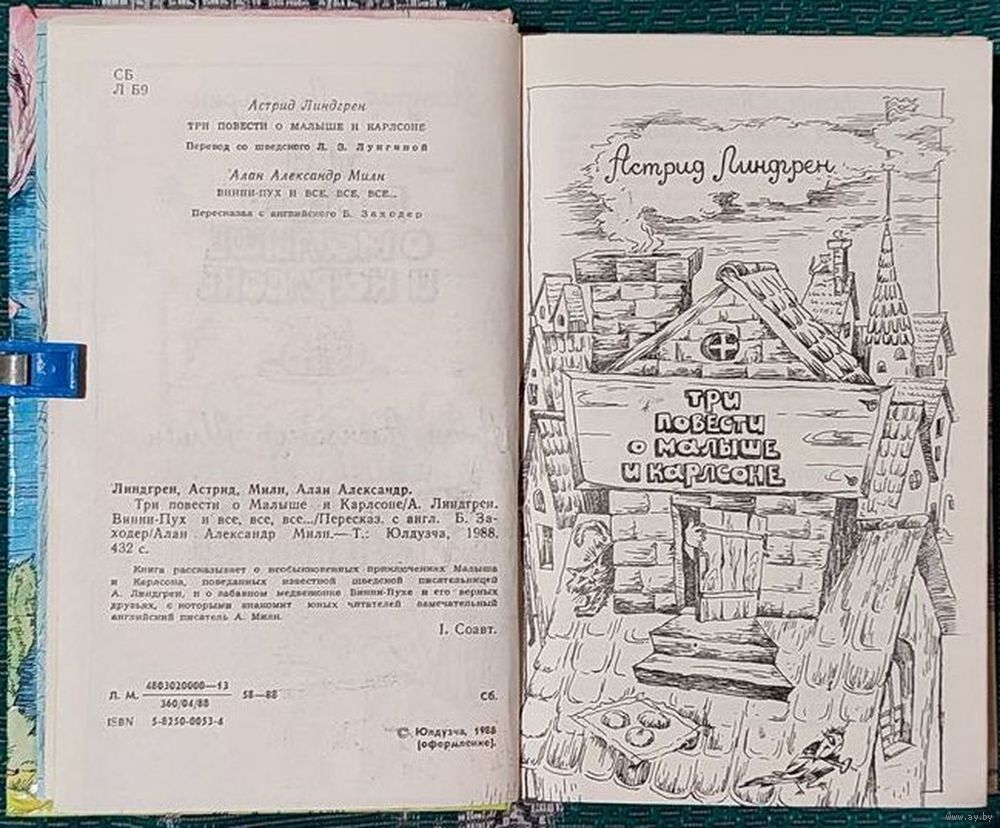 СБ
Л Б9
Астрид Линдгрен
ТРИ ПОВЕСТИ О МАЛЫШЕ И КАРЛСОНЕ
Перевод со шведского Л. З. Лунгиной
Алан Александр Милн
ВИННИ-ПУХ И ВСЕ, ВСЕ, ВСЕ...
Пересказал с английского Б. Заходер
Линдгрен, Астрид, Милн, Алан Александр.
Три повести о Малыше и Карлсоне/А. Линдгрен.
Винни-Пух и все, все, все.../Пересказ. с англ. Б. За-
ходер/Алан Александр Милн.—Т.: Юлдузча, 1988.
432 с.
Книга рассказывает о необыкновенных приключениях Малыша
и Карлсона, поведанных известной шведской писательницей
А. Линдгрен, и о забавном медвежонке Винни-Пухе и его верных
друзьях, с которыми знакомит юных читателей замечательный
английский писатель А. Милн.
I. Соавт.
Л. М. 4803020000—13 58—88 Сб.
360/04/88
ISBN 5-8250-0053-4
© Юлдузча, 1988
(оформление).
Астрид Линдгрен
ТРИ
ПОВЕСТИ
О МАЛЫШЕ
И КАРЛСОНЕ
www.ay.by